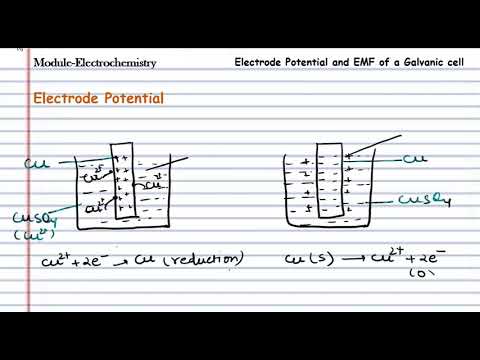 Module-Electrochemistry
Electrode Potential and EMF of a Galvanic cell
Electrode Potential
Cu
Cu²⁺
Cu²⁺
Cu²⁺
CuSO₄
(Cu²⁺)
Cu²⁺ + 2e⁻ → Cu (reduction)
Cu
CuSO₄
Cu(s) → Cu²⁺ + 2e⁻
(O